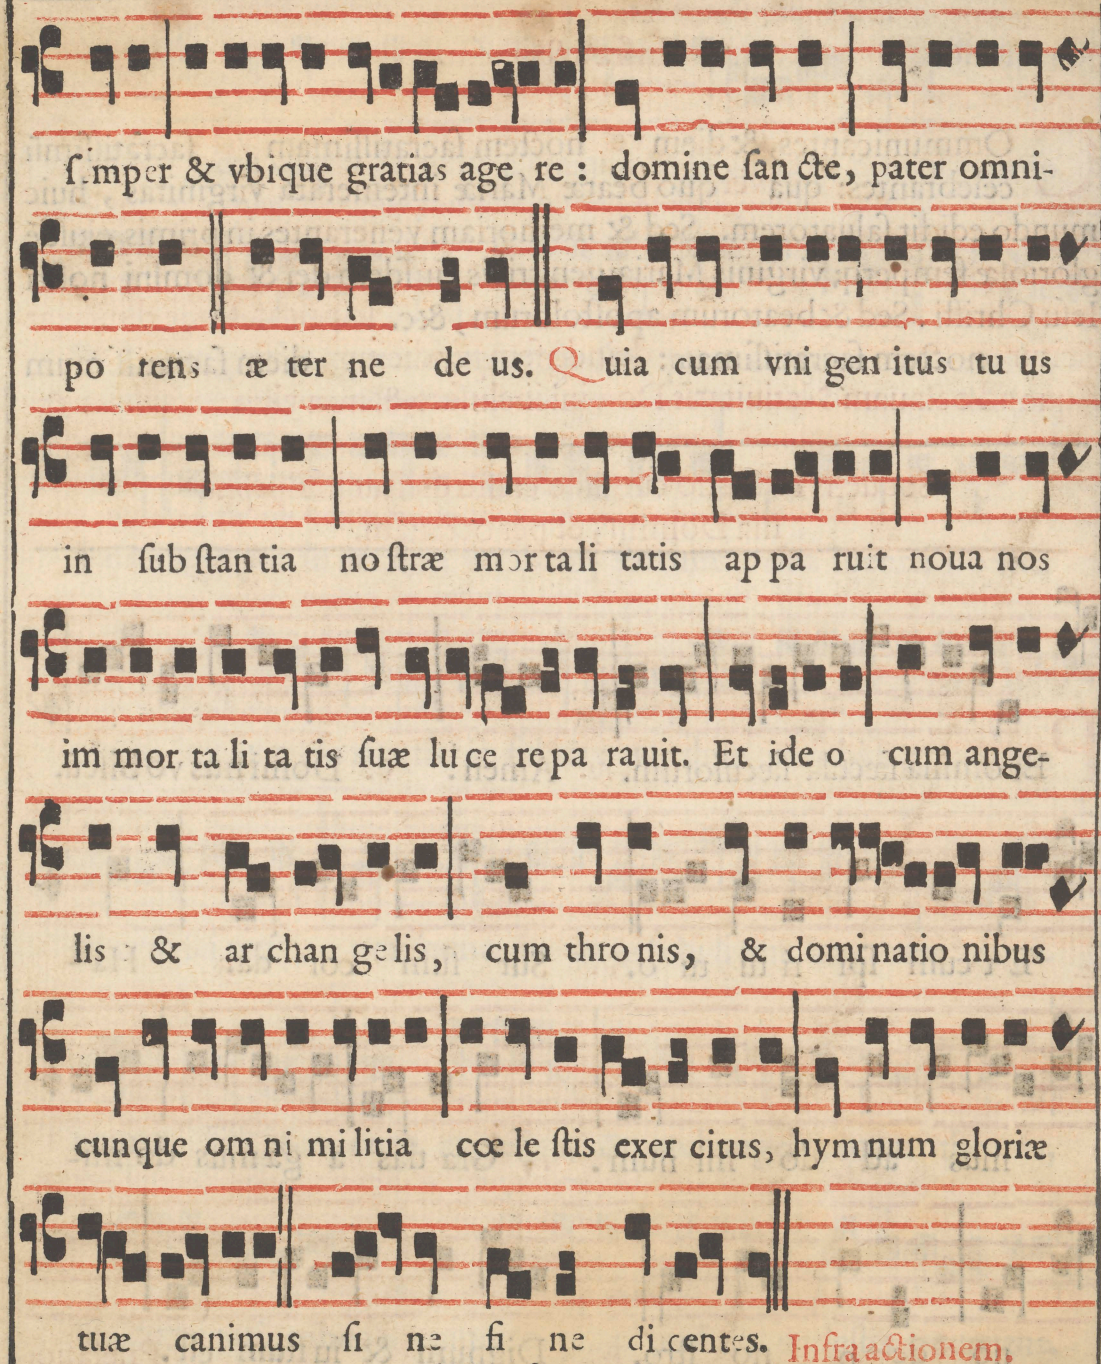 ſemper & vbique gratias age re : domine ſan cte, pater omni-
po tens æ ter ne de us. Quia cum vni gen itus tu us
in ſub ſtan tia no ſtræ mor ta li tatis ap pa ruit noua nos
im mor ta li ta tis ſuæ lu ce re pa ra uit. Et ide o cum ange-
lis & ar chan gelis, cum thro nis, & domi natio nibus
cunque om ni mi litia cœ le ſtis exer citus, hym num gloriæ
tuæ canimus ſi ne fi ne di centes. Infra actionem.